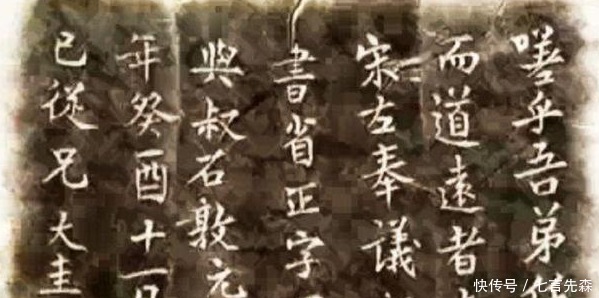 嗟乎吾弟
而道遠者
宋左奉議
書省正字
與叔石敦元
年癸酉十一
已從兄大圭
快传号／七言先森